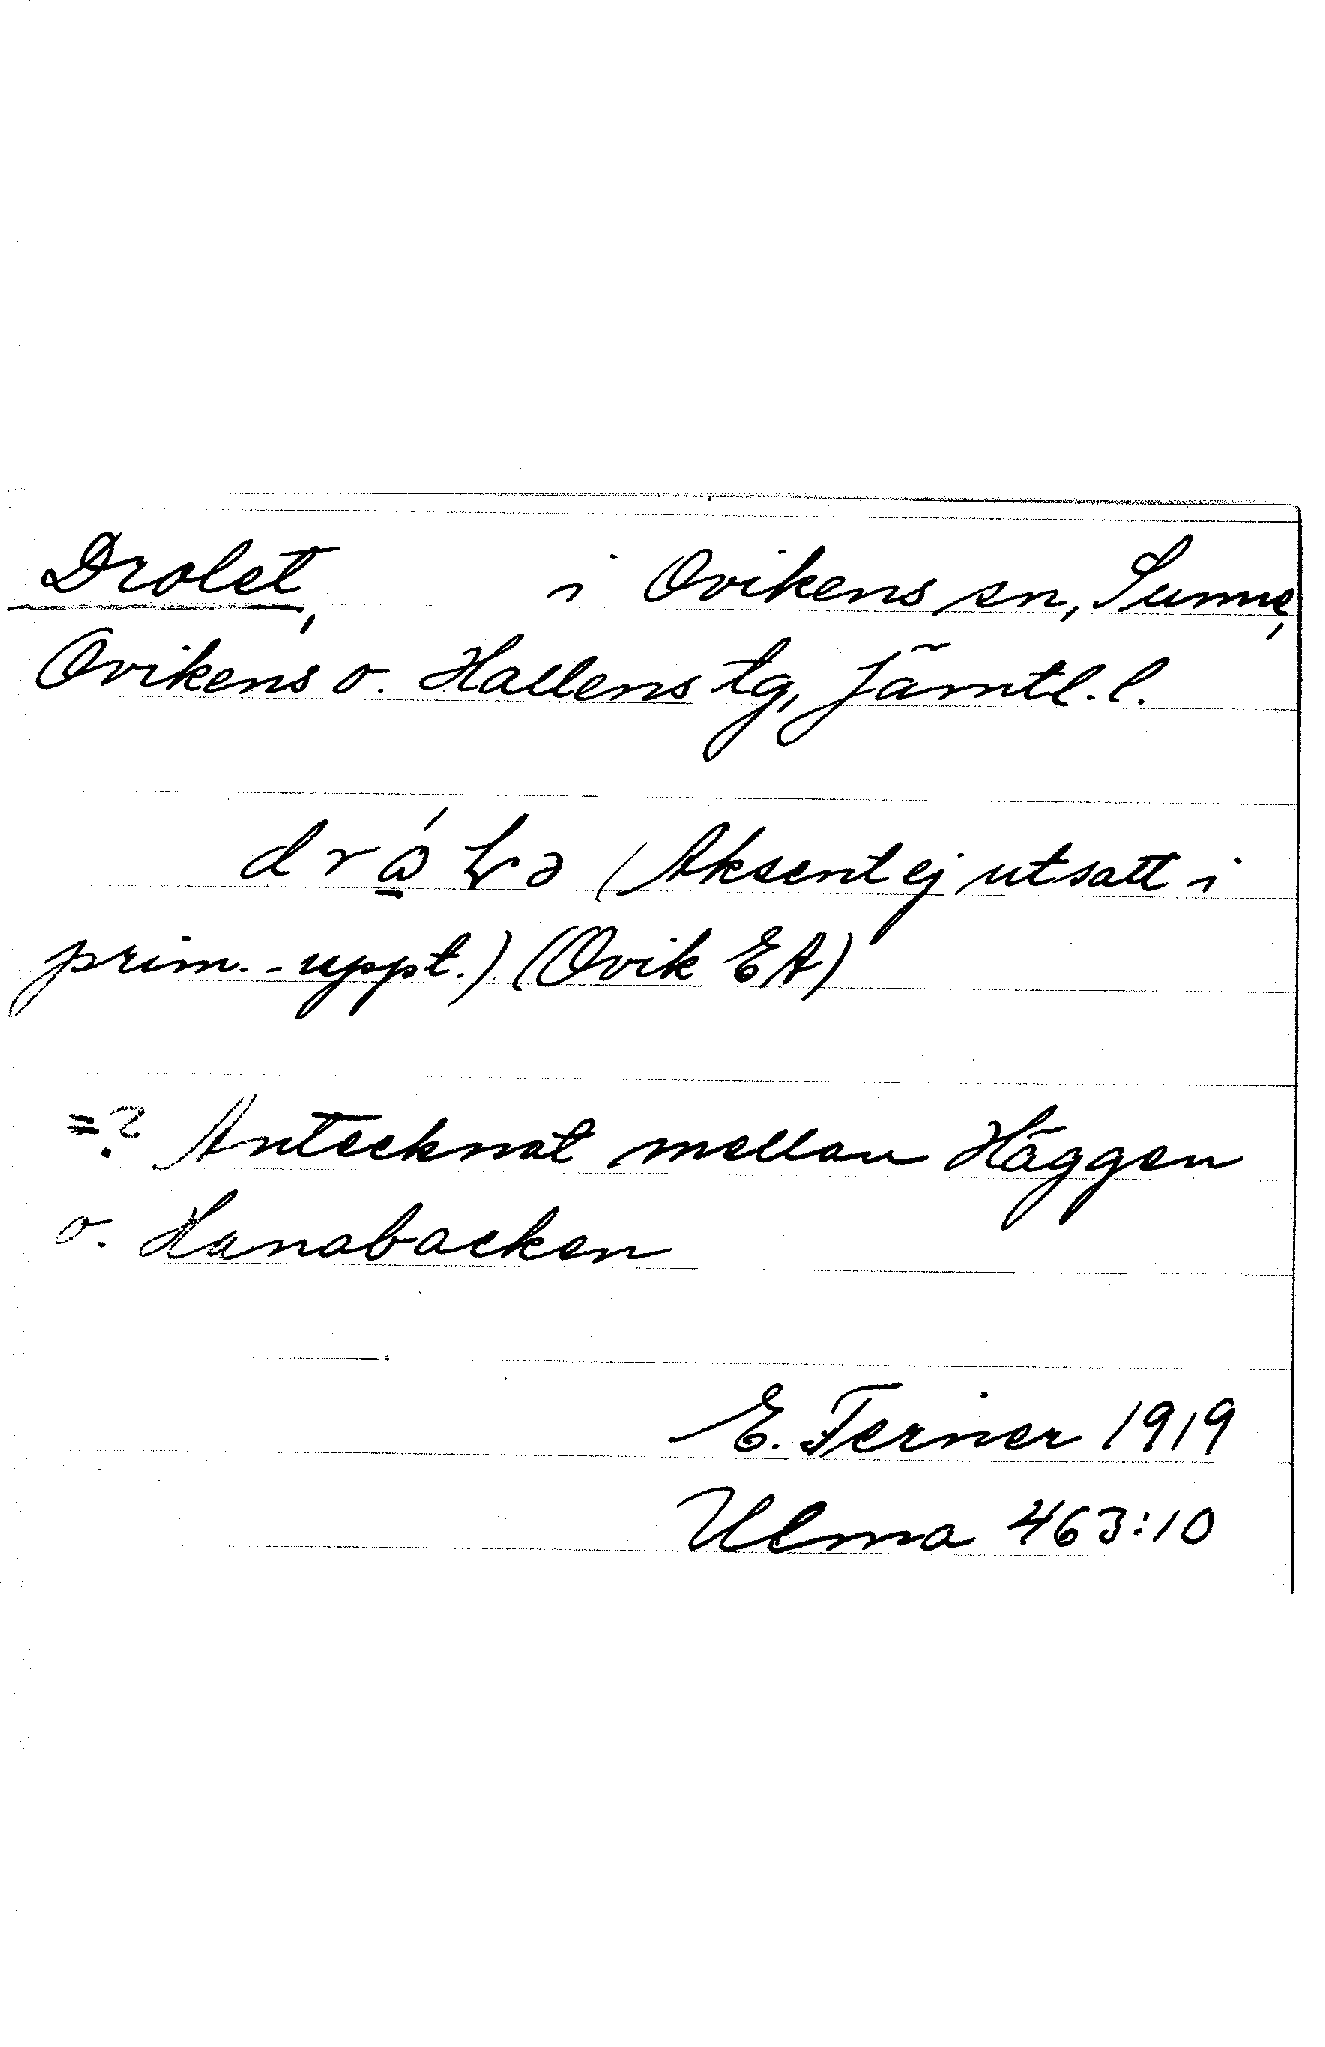 Drolet, i Ovikens sn, Sunne,
Ovikens o. Hallens tg, Jämtl. l.
(Aksent ej utsatt i
prim.-uppt.) (Ovik EA)
=? Antecknat mellan Häggen
o. Hanabacken
E. Ferner 1919
Ulma 463:10